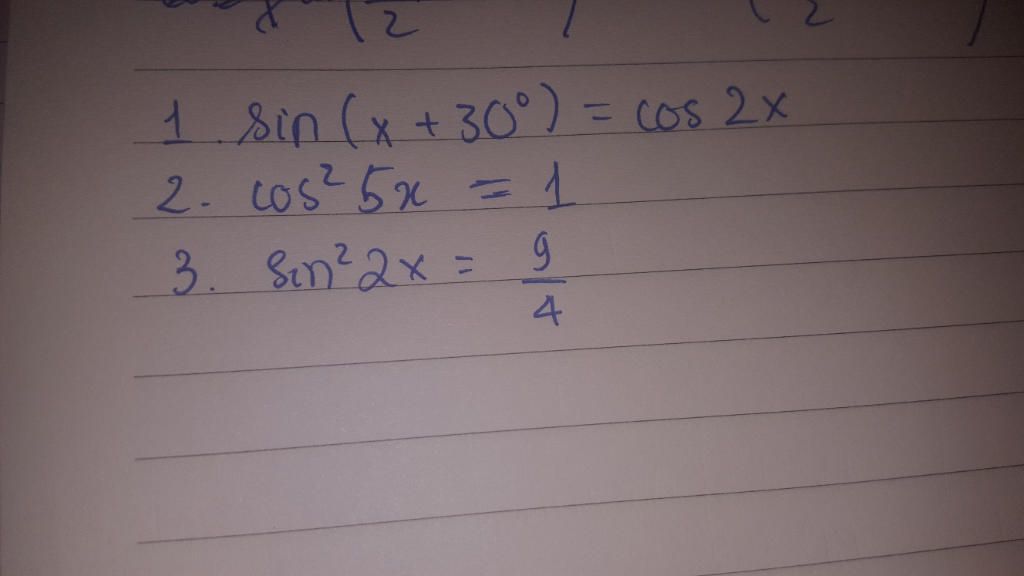 2 ) ( 2 )
1. sin (x + 30°) = cos 2x
2. cos² 5x = 1
3. sin² 2x = 9/4